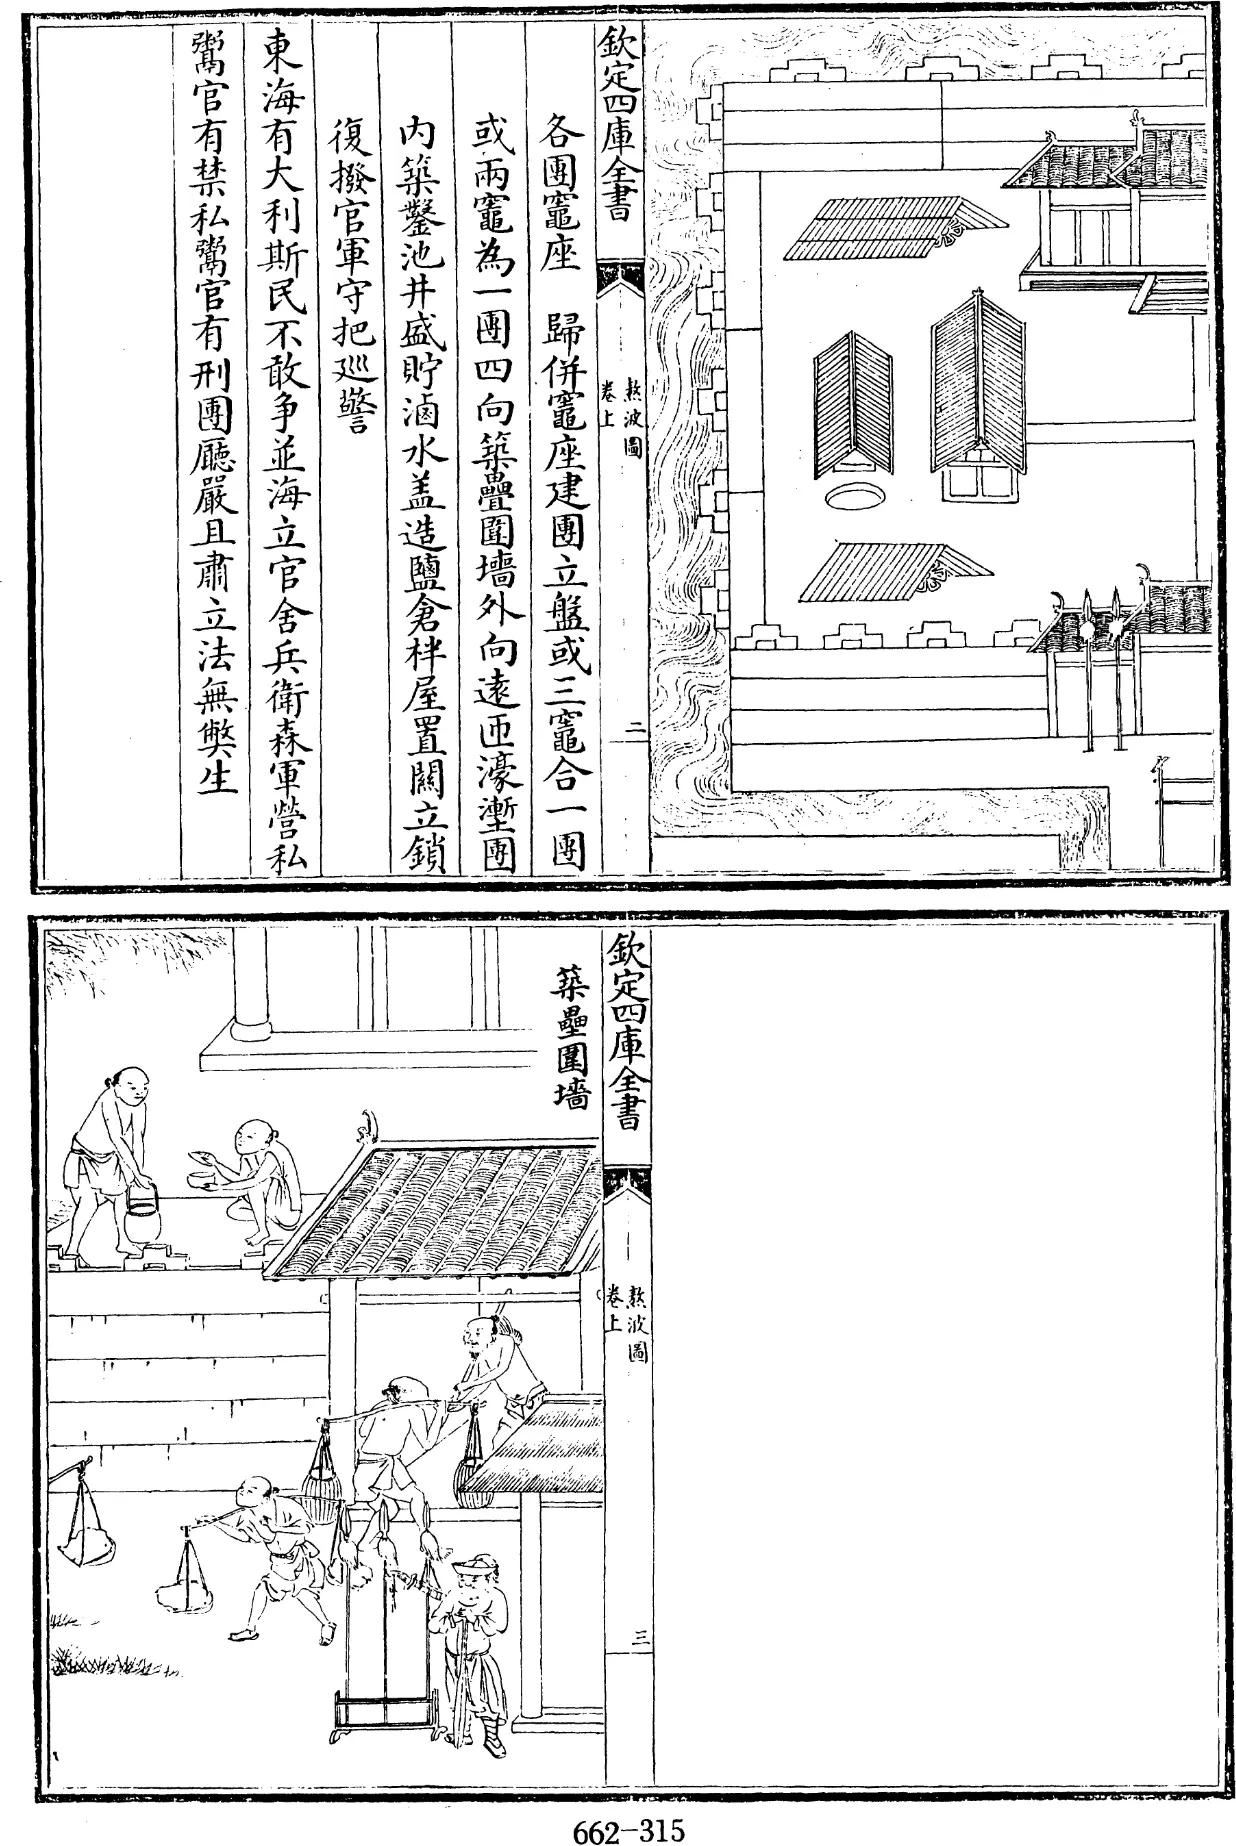 欽定四庫全書
熬波圖
卷上
二
各團竈座　歸併竈座建團立盤或三竈合一團
或兩竈為一團四向築疊圍墻外向遠匝濠塹團
内築鑿池井盛貯滷水盖造鹽倉柈屋置關立鎖
復撥官軍守把廵警
東海有大利斯民不敢争並海立官舍兵衛森軍營私
鬻官有禁私鬻官有刑團廳嚴且肅立法無弊生
欽定四庫全書
熬波圖
卷上
三
築壘圍墻
662-315